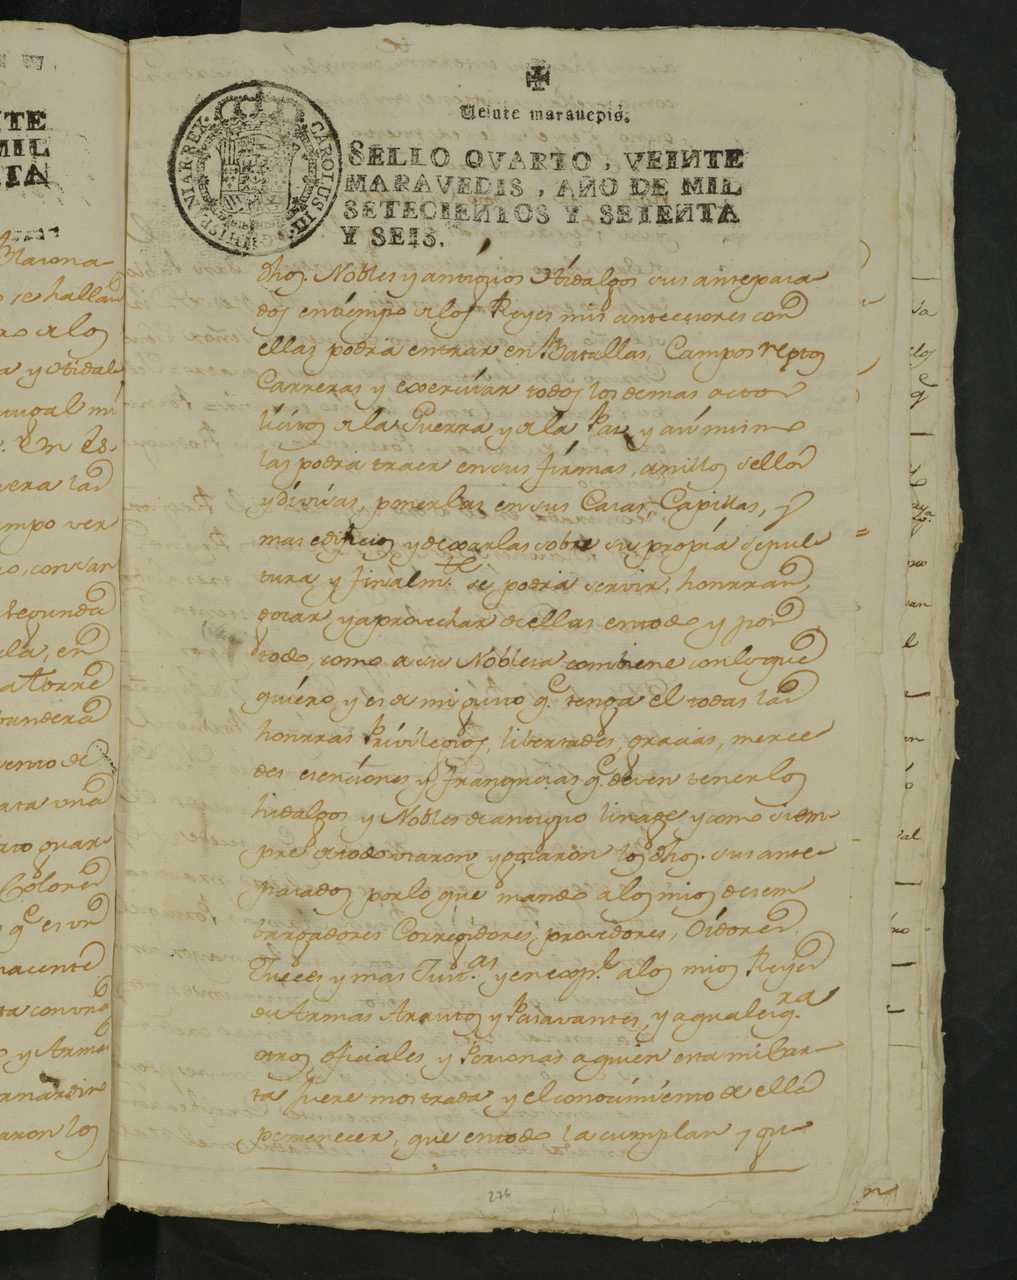 Veinte maravedis.
SELLO QVARTO, VEINTE
MARAVEDIS, AÑO DE MIL
SETECIENTOS Y SETENTA
Y SEIS.
CAROLUS III D G HISPANIAR REX
dhos. Nobles y antiguos Hidalgos sus antepasa
dos en tiempo de los Reyes mis antecesores con
ellas podrá entrar en Batallas, Campos reptos
Carreras y exercitar todos los demas actos
licitos de la Guerra y de la Paz y asi mismo
las podra traer en sus firmas, anillos sellos
y divisas, ponerlas en sus Casas, Capillas, y
mas edificios y dexarlas sobre su propia sepul
tura y finalmte. se podrá servir, honrrar,
gozar y aprovechar de ellas en todo y por
todo, como a su Nobleza combiene con lo que
quiero y es de mi gusto q.e tenga el todas las
honrras Privilegios, libertades, gracias, merce
des esenciones y franquicias q.e deven tener los
hidalgos y Nobles de antiguo linage y como siem
pre de todo usaron y gozaron los dhos. sus ante
pasados por lo que mando a los mios desem
bargadores Corregidores, proveedores, Oidores
Jueces y mas Just.as y en esp.l a los mios Reyes
de Armas Arautos y Pasavantes, y a qualesq.ra
otros oficiales y Personas a quien esta mi Car
ta fuere mostrada y el conocimiento de ella
pertenecer, que en todo la cumplan y gu
276